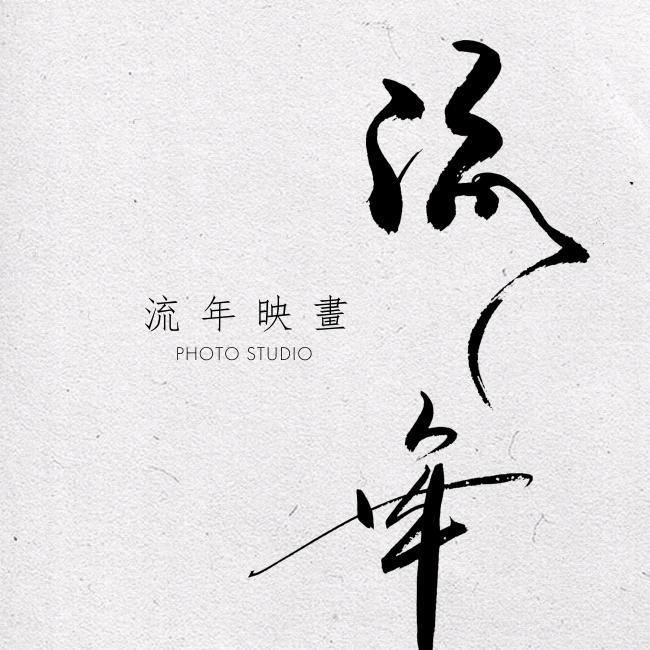 流年
流年映畫
PHOTO STUDIO